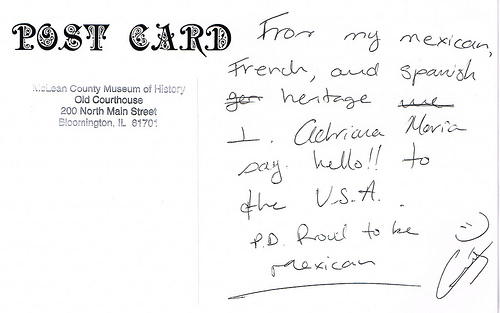 POST CARD
McLean County Museum of History
Old Courthouse
200 North Main Street
Bloomington, IL 61701
From my mexican,
French, and spanish
heritage
I. Adriana Maria
say. hello!! to
the U.S.A..
P.D. Proud to be
mexican